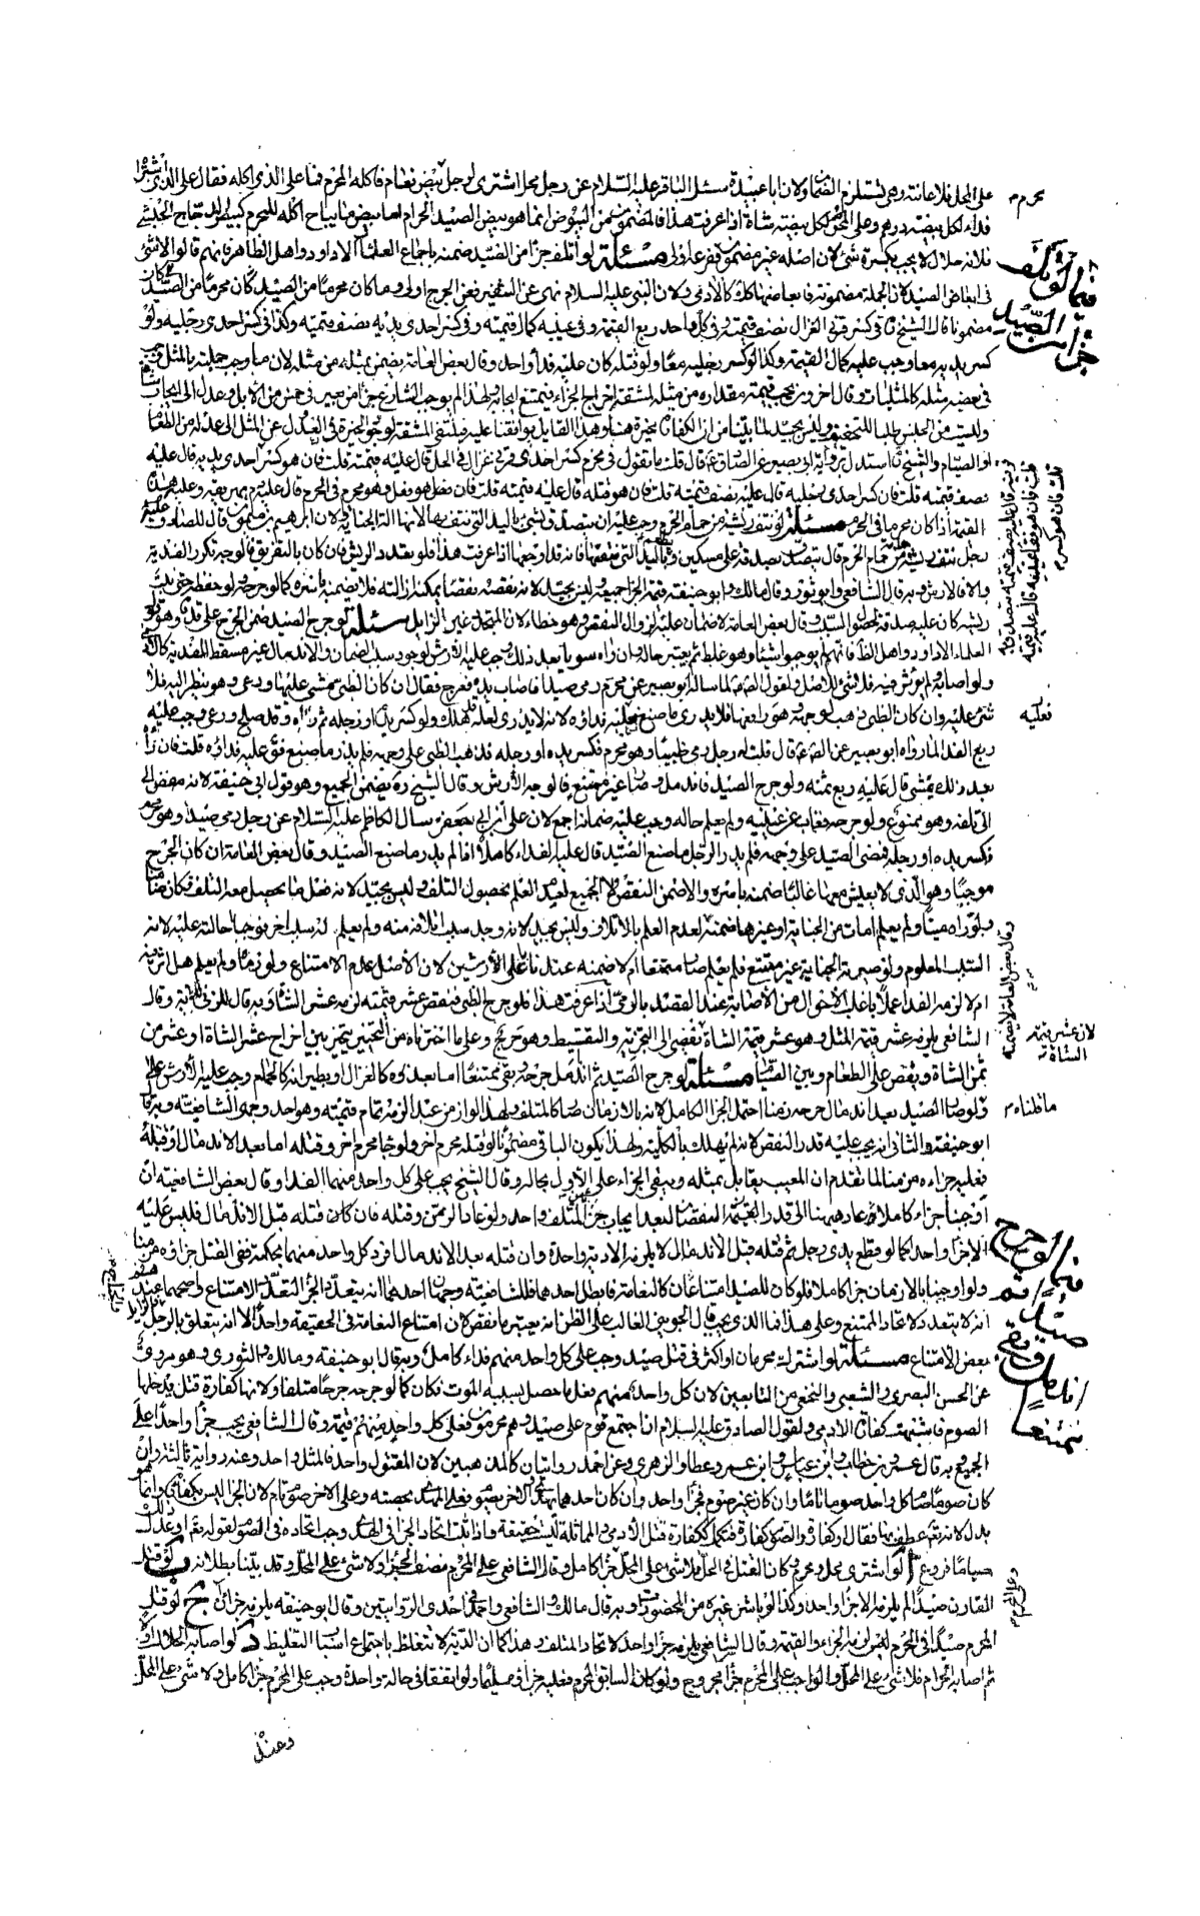 على المحل فلاعانته وهى تستلزم الضمان ولان ابا عبيدة سئل الباقر عليه السلام عن رجل محل اشترى لرجل بيض نعام فاكله المحرم فما على الذى اكله فقال على الذى اشتراه
فداء لكل بيضة درهم وعلى المحرم لكل بيضة شاة اذا عرفت هذا فالمضمون من البيوض انما هو بيض الصيد الحرام اما بيض ما يباح اكله للمحرم كبيض الدجاج الحبشى
فلانه حلال لا يجب بكسره شئ لان اصله غير مضمون ففرعه اولى مسئلة لو اتلف جزا من الصيد ضمنه باجماع العلماء الا داود واهل الظاهر فانهم قالوا لا شئ
فى ابعاض الصيد لان الجملة مضمونة فابعاضها كذلك كالادمى ولان النبى عليه السلام نهى عن التنفير فعن الجرح اولى وما كان محرما من الصيد كان
مضمونا قال الشيخ فى كسر قرنى الغزال نصف قيمته وفى كل واحد ربع القيمة وفى عينيه كمال قيمته وفى كسر احدى يديه نصف قيمته وكذا فى كسر احدى رجليه ولو
كسر يديه معا وجب عليه كمال القيمة وكذا لو كسر رجليه معا ولو قتله كان عليه فداء واحد وقال بعض العامة يضمن بمثله من مثله لان ما وجب جملته بالمثل وجب
فى بعضه مثله كالمثليات وقال اخرون يجب قيمة مقداره من مثله لمشقة اخراج الجزاء فيمتنع ايجابه ولهذا لم يوجب الشارع جزا من بعير فى خمس من الابل وعدل الى ايجاب شاة
وليست من الجنس طلبا للتخفيف وليس بجيد لما بينا من ان الكفارة مخيرة هنا وهذا القايل يوافقنا عليه فينتفى المشقة لوجود الخيرة فى العدول عن المثل الى عدله من الطعام
او الصيام والشيخ استدل برواية ابى بصير عن الصادق قال قلت ما تقول فى محرم كسر احدى قرنى غزال فى الحل قال عليه ربع قيمته قلت فان هو كسر احدى يديه قال عليه
نصف قيمته قلت فان كسر احدى رجليه قال عليه نصف قيمته قلت فان هو قتله قال عليه قيمته قلت فان فعل وهو محرم فى الحرم قال عليه دم يهريقه وعليه هذه
القيمة اذا كان محرما فى الحرم مسئلة لو نتف ريشة من حمام الحرم وجب عليه ان يتصدق بشئ باليد التى نتف بها لانها الة الجناية ولان ابراهيم بن ميمون قال للصادق عليه
رجل نتف ريشة من حمام الحرم قال يتصدق بصدقة على مسكين ويعطى باليد التى نتف بها فانه قد اوجعها اذا عرفت هذا فلو تعدد الريش فان كان بالتفريق فالوجه تكرر الفدية
والا فالارش وبه قال الشافعى وابو ثور وقال مالك وابو حنيفة قيمة الجزا جميعه وليس بجيد لانه نقصه نقصا يمكن ازالته فلا يضمنه باسره كما لو جرحه ولو حفظه حتى نبت
ريشه كان عليه صدقة لحصول السبب وقال بعض العامة لا ضمان عليه لزوال النقص وهو خطاء لان المتجدد غير الزايل مسئلة لو جرح الصيد ضمن الجرح على قدره وهو قول
العلماء الا داود واهل الظاهر فانهم لم يوجبوا شيئا وهو غلط ثم يعتبر حاله فان راه سويا بعد ذلك وجب عليه الارش لوجود سبب الضمان والاندمال غير مسقط للفدية كالادمى
ولو اصابه ولم يؤثر فيه فلا شئ للاصل ولقول الصادق لما ساله ابو بصير عن محرم رمى صيدا فاصاب يده فعرج فقال ان كان الظبى مشى عليها ورعى وهو ينظر اليه فلا
شئ عليه وان كان الظبى ذهب لوجهه وهو رافعها فلا يدرى ما صنع فعليه فداؤه لانه لا يدرى لعله قد هلك ولو كسر يده او رجله ثم راه وقد صلح ورعى وجب عليه
ربع الفداء لما رواه ابو بصير عن الصادق قال قلت له رجل رمى ظبيا وهو محرم فكسر يده او رجله فذهب الظبى على وجهه فلم يدر ما صنع قال عليه فداؤه قلت فان راه
بعد ذلك يمشى قال عليه ربع ثمنه ولو جرح الصيد فاندمل وصار غير ممتنع فالوجه الارش وقال الشيخ ره يضمن الجميع وهو قول ابى حنيفة لانه مفض الى
الى تلفه وهو ممنوع ولو جرحه فغاب عن عينيه ولم يعلم حاله وجب عليه ضمانه اجمع لان على بن جعفر سال الكاظم عليه السلام عن رجل رمى صيدا وهو محرم
فكسر يده او رجله فمضى الصيد على وجهه فلم يدر الرجل ما صنع الصيد قال عليه الفداء كاملا اذا لم يدر ما صنع الصيد وقال بعض العامة ان كان الجرح
موجبا وهو الذى لا يعيش معها غالبا ضمنه باسره والا ضمن النقص لا الجميع لعدم العلم بحصول التلف وليس بجيد لانه فعل ما يحصل معه التلف فكان ضامنا
ولو راه ميتا ولم يعلم امات من الجناية او غيرها ضمنه لعدم العلم بالاتلاف وليس بجيد لانه وجد سبب اتلافه منه ولم يعلم له سبب اخر فوجب احالته عليه لانه
السبب المعلوم ولو صيرته الجناية غير ممتنع فلم يعلم صار ممتنعا ام لا ضمنه عندنا باعلى الارشين لان الاصل عدم الامتناع ولو رماه ولم يعلم هل اثر فيه
ام لا لزمه الفداء عملا باغلب الاحوال من الاصابة عند القصد بالرمى اذا عرفت هذا فلو جرح الظبى فنقص عشر قيمته لزمه عشر الشاة وبه قال المزنى وقال
الشافعى يلزمه عشر قيمة المثل وهو عشر قيمة الشاة يفضى الى التجزية والتقسيط وهو حرج وعلى ما اخترناه من التخيير يتخير بين اخراج عشر الشاة او عشر من
ثمن الشاة ويفض على الطعام وبين الصيام مسئلة لو جرح الصيد ثم اندمل جرحه وبقى ممتنعا اما بعدوه كالغزال او بطيرانه كالحمام وجب عليه الارش على
ولو صار الصيد بعد اندمال جرحه زمنا احتمل الجزا الكامل لانه بالازمان صار كالمتلف ولهذا لو ازمن عبدا لزمه تمام قيمته وهو احد وجهى الشافعية وبه قال
ابو حنيفة والثانى انه يجب عليه قدر النقص لانه لم يهلك بالكلية ولهذا يكون الباقى مضمونا لو قتله محرم اخر ولو جا محرم اخر وقتله اما بعد الاندمال او قبله
فعليه جزاءه زمنا لما تقدم ان المعيب يقابل بمثله ويبقى الجزاء على الاول بحاله وقال الشيخ يجب على كل واحد منهما الفداء وقال بعض الشافعية ان
اوجبنا جزاء كاملا عاد هيهنا الى قدر القيمة النقصان لبعد ايجاب جزائين لمتلف واحد ولو عاد المزمن وقتله فان كان قتله قبل الاندمال فليس عليه
الا جزا واحد كما لو قطع يدى رجل ثم قتله قبل الاندمال لا يلزمه الا دية واحدة وان قتله بعد الاندمال افرد كل واحد منهما بحكمه ففى القتل جزاؤه زمنا
ولو اوجبنا بالازمان جزا كاملا فلو كان للصيد امتناعان كالنعامة فابطل احدهما فللشافعية وجهان احدهما انه يتعدد الجزا لتعدد الامتناع واصحهما عندهم
انه لا يتعدد لاتحاد الممتنع وعلى هذا فما الذى يجب قال الجوينى الغالب على الظن انه يعتبر ما نقص لان امتناع النعامة فى الحقيقة واحد الا انه يتعلق بالرجل
بعض الامتناع مسئلة لو اشترك محرمان او اكثر فى قتل صيد وجب على كل واحد منهم فداء كامل وبه قال ابو حنيفة ومالك والثورى وهو مروى
عن الحسن البصرى والشعبى والنخعى من التابعين لان كل واحد منهم فعل ما حصل بسببه الموت فكان كما لو جرحه جرحا متلفا ولانها كفارة قتل يدخلها
الصوم فاشبهت كفارة الادمى ولقول الصادق عليه السلام اذا اجتمع قوم على صيد وهم محرمون فعلى كل واحد منهم قيمته وقال الشافعى يجب جزا واحد على
الجميع وبه قال عمر بن خطاب وابن عباس وابن عمر وعطا والزهرى وعن احمد روايتان كالمذهبين لان المقتول واحد فالمثل واحد وعنه رواية ثالثة وان
كان صوما صام كل واحد صوما تاما وان كان غير صوم فجزا واحد وان كان احدهما يهدى والاخر يصوم فعلى المهدى بحصته وعلى الاخر صوم تام لان الجزا ليس بكفارة وانما هو
بدل لانه تعالى عطف بها فقال او كفارة والصوم كفارة فتكمل ككفارة قتل الادمى والمماثلة ليست حقيقة واذا ثبت اتحاد الجزا فى الهدى وجب اتحاده فى الصوم لقوله تعالى او عدل ذلك
صياما فروع ا لو اشترك محل ومحرم وكان القتل فى الحل فلا شئ على المحل وعلى المحرم جزا كامل وقال الشافعى على المحرم نصف الجزاء ولا شئ على المحل وقد بينا بطلانه ب لو قتل
القارن صيدا لم يلزمه الا جزاء واحد وكذا لو باشر غيره من المحظورات وبه قال مالك والشافعى واحمد فى احدى الروايتين وقال ابو حنيفة يلزمه جزائان ج لو قتل
المحرم صيدا فى الحرم لزمه الجزاء والقيمة وقال الشافعى يلزمه جزاء واحد لاتحاد المتلف وهذا كما ان الدية لا تتغلظ باجتماع اسباب التغليظ د لو اصابه الحلال اولا
ثم اصابه الحرام فلا شئ على المحل والواجب على المحرم جزا مجروح ولو كان السابق المحرم فعليه جزاؤه سليما ولو اتفقا فى حالة واحدة وجب على المحرم جزا كامل ولا شئ على المحل
وعند
محرم
فيما لو تلف
جزا من الصيد
فعليه
لان عشر قيمة
الشاة
ما قلناه
فيما لو جرح
صيدا ثم
اندمل وبقى
ممتنعا
وعلى المحرم